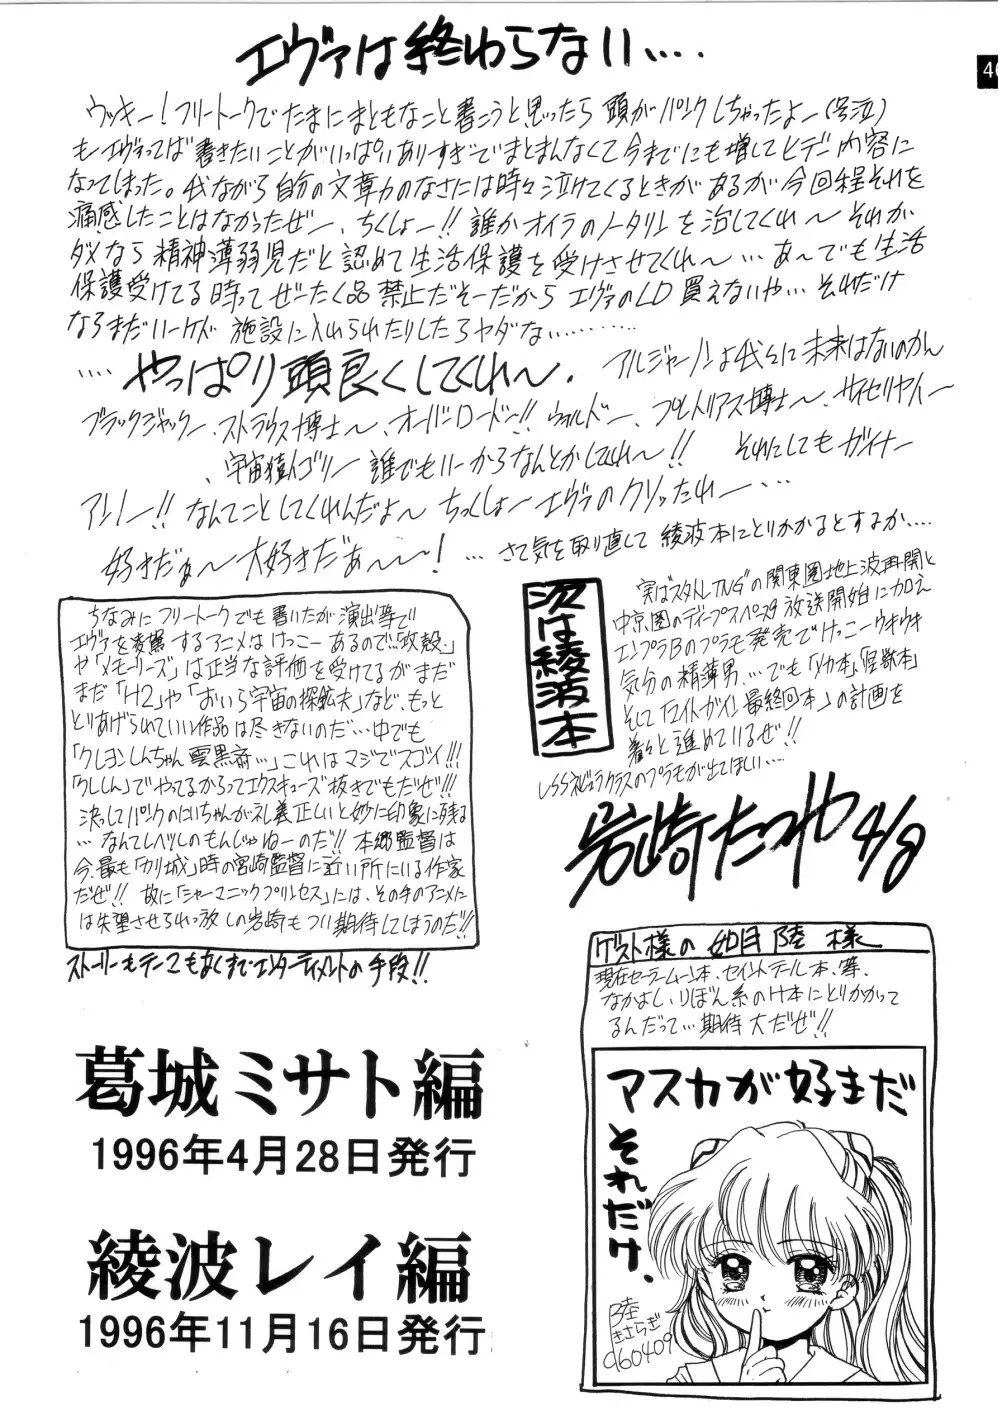 エヴァは終わらない….
46
ウッキー！フリートークでたまにまともなこと書こうと思ったら頭がパンクしちゃったよー(号泣)
もーエヴァってば書きたいことがいっぱいありすぎでまとまんなくて今までにも増してヒデー内容に
なってしまった。我ながら自分の文章力のなさには時々泣けてくるときがあるが今回程それを
痛感したことはなかったぜー、ちくしょー!!誰かオイラのノータリンを治してくれ〜それが
ダメなら精神薄弱児だと認めて生活保護を受けさせてくれ〜…あ〜でも生活
保護受けてる時ってぜーたく品禁止だそーだからエヴァのLD買えないや…それだけ
ならまだいーけど施設に入れられたりしたらヤダな…………
‥‥やっぱり頭良くしてくれ〜.
アルジャーノンよ我々に未来はないのかん
ブラックジャックー、ストラウス博士〜、オーバーロード〜!!ウォルドー、プレトリアス博士〜、サイセリヤイー
、宇宙猿人ゴリー誰でもいーからなんとかしてくれ〜!!
それにしてもガイナー
アンノー!!なんてことしてくれんだよ〜ちっくしょーエヴァのクソッたれー…
好きだぁ〜大好きだぁ〜〜!
…さて気を取り直して綾波本にとりかかるとするか….
ちなみにフリートークでも書いたが演出等で
エヴァを凌駕するアニメはけっこーあるので…「攻殻」
や「メモリーズ」は正当な評価を受けてるがまだ
まだ「H2」や「おいら宇宙の探鉱夫」など、もっと
とりあげられていい作品は尽きないのだ…中でも
「クレヨンしんちゃん雲黒斎…」これはマジでスゴイ!!!
「クレしん」でやってるからってエクスキューズ抜きでもだぜ!!!
決してパンクのにいちゃんが礼義正しいと妙に印象に残る
…なんてレベルのもんじゃねーのだ!!本郷監督は
今、最も「カリ城」時の宮崎監督に近い所にいる作家
だぜ!!故に「シャーマニックプリンセス」には、その手のアニメに
は失望させられっ放しの岩崎もつい期待してしまうのだ!!
ストーリーもテーマもなくまでエンターティメントの手段!!
次は綾波本
実はスタトレTNGの関東圏地上波再開と
中京圏のディープスペース9放送開始に加え
エンプラBのプラモ発売でけっこーウキウキ
気分の精薄男…でも「メカ本」「怪獣本」
そして「マイトガイン最終回本」の計画を
着々と進めているぜ!!
USSネビュラクラスのプラモが出てほしい….
岩崎たつや 4/8
ゲスト様の如月陸様
現在セーラームーン本、セイントテール本、等、
なかよし、りぼん系のH本にとりかかって
るんだって…期待大だぜ!!
マスカが好きだ
それだけ.
陸
きさらぎ
960409
葛城ミサト編
1996年4月28日発行
綾波レイ編
1996年11月16日発行